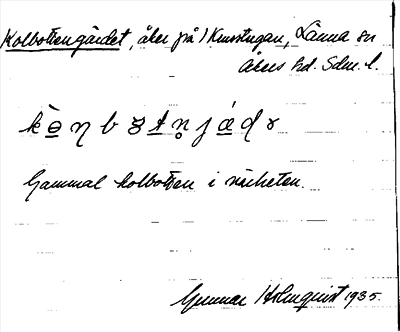 Kolbottengärdet, åker på Kvarstugan, Länna sn
Åkers hd. Sdm. l.
Gammal kolbotten i närheten.
Gunnar Holmquist 1935.